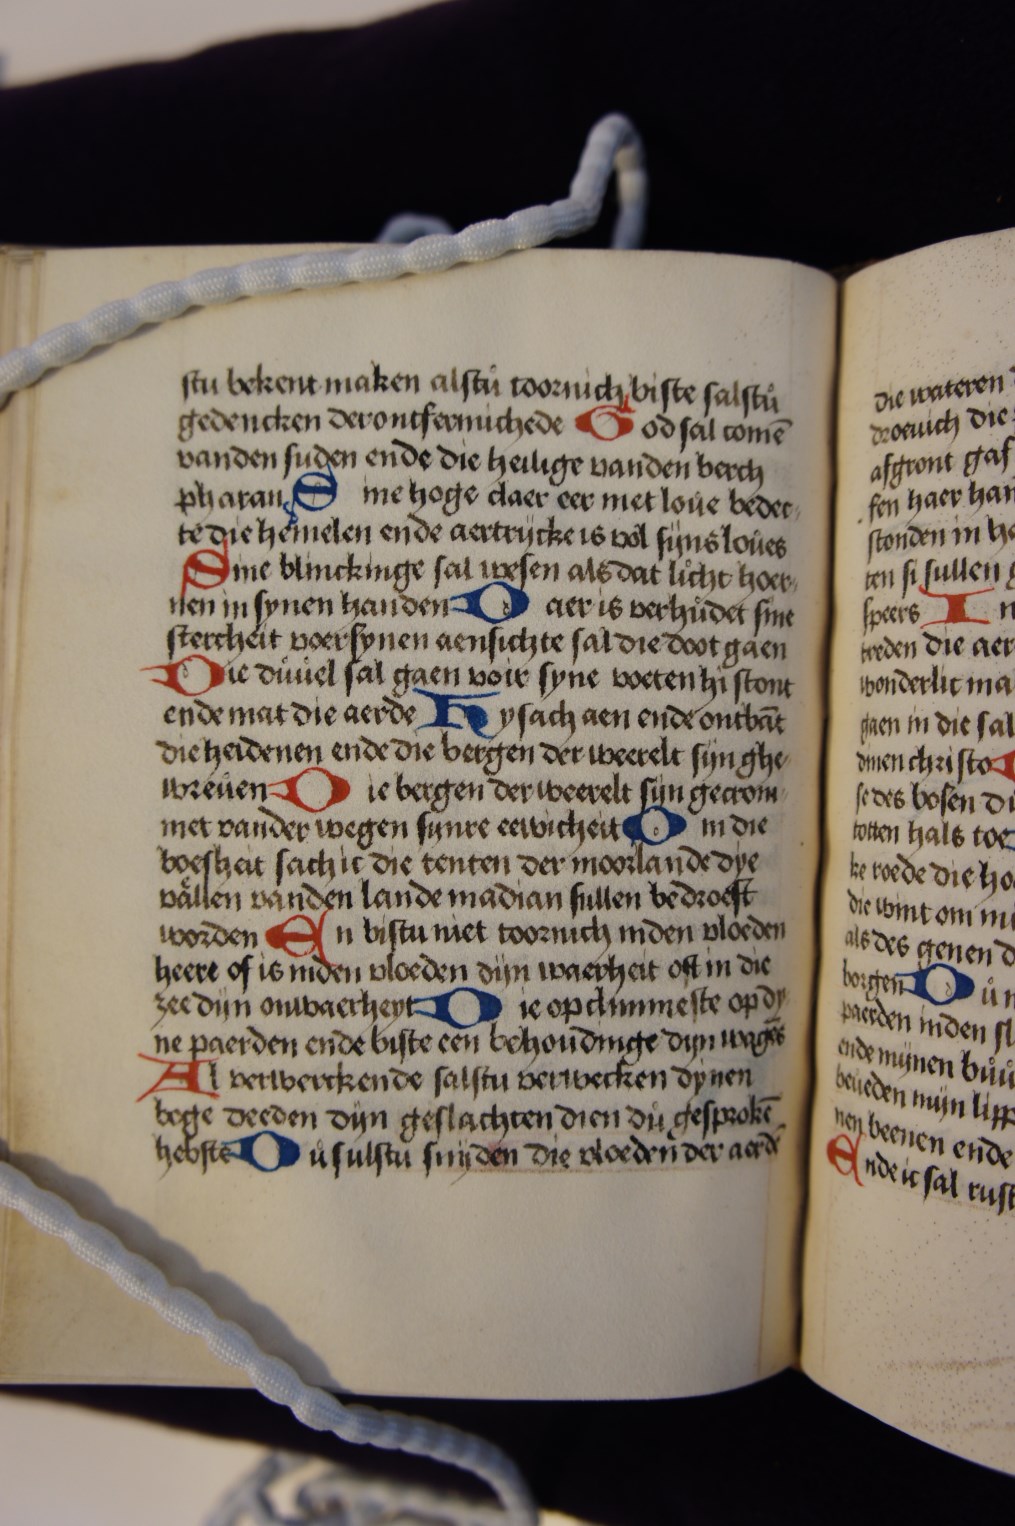 stu bekent maken alstu toornich biste salstu
gedencken der ontfermichede God sal comē
vanden suden ende die heilige vanden berch
pharan Sine hoge claer eer met loue bedec
te die hemelen ende aertrijcke is vol sijns loues
Sine blinckinge sal wesen als dat licht hoer
nen in synen handen Daer is verhudet sine
stercheit voer synen aensichte sal die doot gaen
Die duuel sal gaen voir syne voeten hi stont
ende mat die aerde Hy sach aen ende ontbāt
die heidenen ende die bergen der weerelt sijn ghe
wreuen Die bergen der weerelt sijn gecrom
met vander wegen sijnre eewicheit Om die
boesheit sach ic die tenten der moorlande dye
vällen vanden lande madian sullen bedroeft
worden En bistu niet toornich inden vloeden
heere of is inden vloeden dijn waerheit oft in die
zee dijn onwaerheyt Die op climmeste op dy
ne paerden ende biste een behoudinge dijn wagēs
Al verwerckende salstu verwecken dynen
boge deeden dijn geslachten dien du gesprokē
hebste Du sulstu snijden die vloeden der aerdē
die wateren
droeuich die
afgront gaf
fen haer han
stonden in h
ten si sullen
speers I n
treden die aer
wonderlic ma
gaen in die sal
dinen christo
se des bosen
totten hals toe
ke roede die ho
die wint om mi
als des genen
borgen Du
paerden inden
ende mijnen
beueden mijn lipp
nen beenen ende
Ende ic sal rust